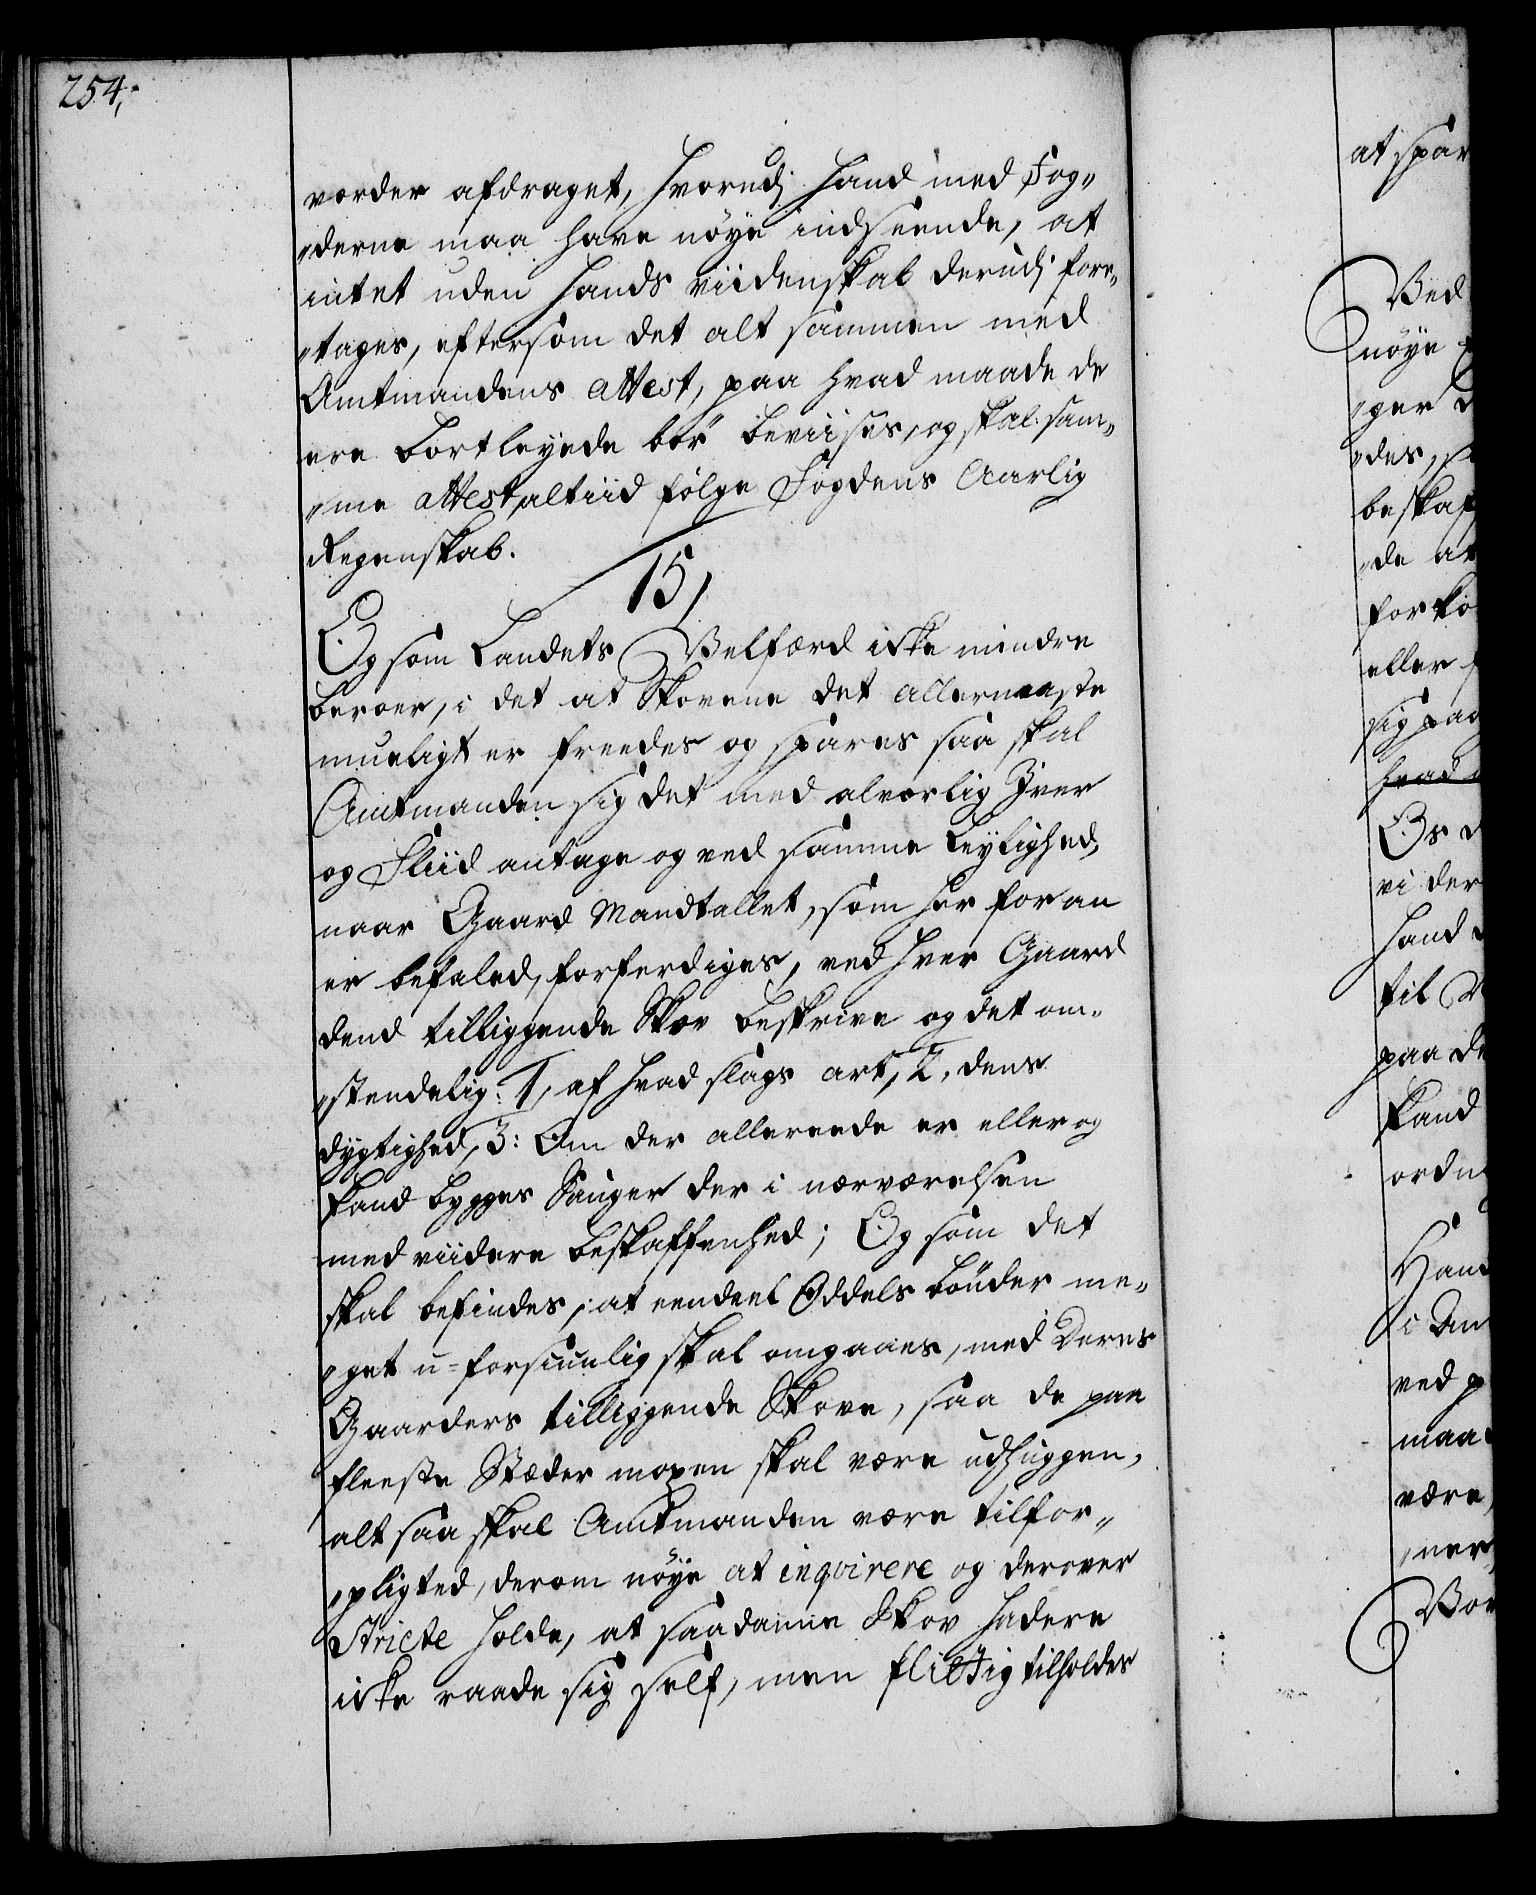 254,
vorder afdraget, hvorudj hand med Fog„
„derne maa have nöye indseende, at
intet uden hands viidenskab derudj fore„
„tages, eftersom det alt sammen med
Amtmandens attest, paa hvad maade de
ere bortleyede bör beviises, og skal sam„
„me attest altiid fölge Fogdens Aarlig
Regenskab.
15,
Og som Landets Velfærd icke mindre
beroer, i det at Skovene det allermeeste
mueligt er freedes og spares saa skal
Amtmanden sig det med alvorlig Iver
og Fliid antage og ved samme Leylighed,
naar Gaard Mandtallet, som her foran
er befaled, forferdiges, ved hver Gaard
dend tilliggende Skov beskrive og det om„
„stendelig: 1, af hvad slags art, 2, dens
dygtighed, 3: Om der allereede er eller og
kand bygges Sauger der i nærværelsen
med viidere beskaffenhed; Og som det
skal befindes, at eendeel Oddels bönder me„
„get u=forsiunlig skal omgaaes, med Deres
Gaarders tilliggende Skove, saa de paa
fleeste Stæder mogen skal være udhuggen,
alt saa skal Amtmanden være tilfor„
„pligted, derom nöye at inqvirere og derover
Stricte holde, at saadanne Skov hadere
icke raade sig self, men flittig tilholdes
at spar
Ved
nöye
„ger
„des,
beskaf
„de at
forkö
eller
sig paa
hvad
Os
vi der
hand
til
paa de
kand
ordn
Hand
i
ved p
maa
være,
„ner
Vor